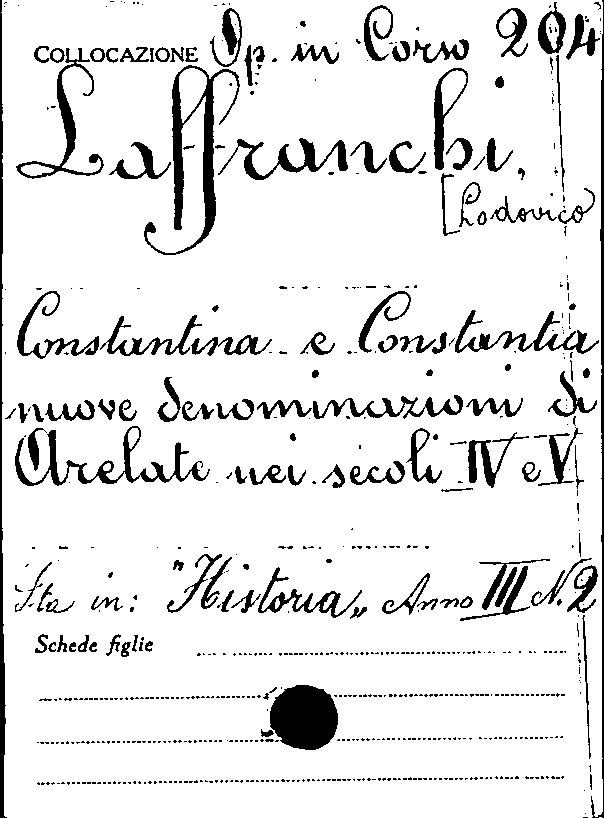 COLLOCAZIONE Op. in Corso 204
Laffranchi,
[Lodovico
Constantina e Constantia
nuove denominazioni di
Arelate nei secoli IV e V
Sta in: "Historia„ Anno III N. 2
Schede figlie